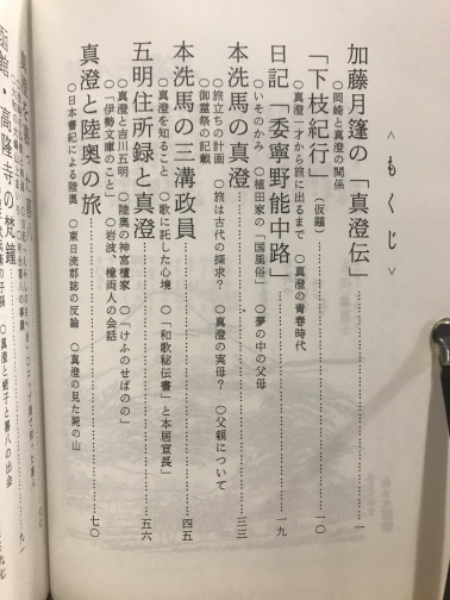 ＜もくじ＞
加藤月篷の「真澄伝」……一
○岡崎と真澄の関係
「下枝紀行」（仮題）……一〇
○真澄一才から旅に出るまで ○真澄の青春時代
日記「委寧野能中路」……一九
○いそのかみ ○植田家の「国風俗」 ○夢の中の父母
本洗馬の真澄……三三
○旅立ちの計画 ○旅は古代の探求？ ○真澄の実母？ ○父親について
○御霊祭の記載
本洗馬の三溝政員……四五
○真澄を知ること ○歌に託した心境 ○「和歌秘伝書」と本居宣長」
五明住所録と真澄……五六
○真澄と吉川五明 ○陸奥の神宮檀家 ○「けふのせばのの」
○「伊勢文庫のこと」 ○岩波、檜両人の会話
真澄と陸奥の旅……七〇
○日本書紀による陸奥 ○東日流郡誌の反論 ○真澄の見た死の山
九一
函館・高隆寺の梵鐘
○真澄と蛯子と喜八の出会